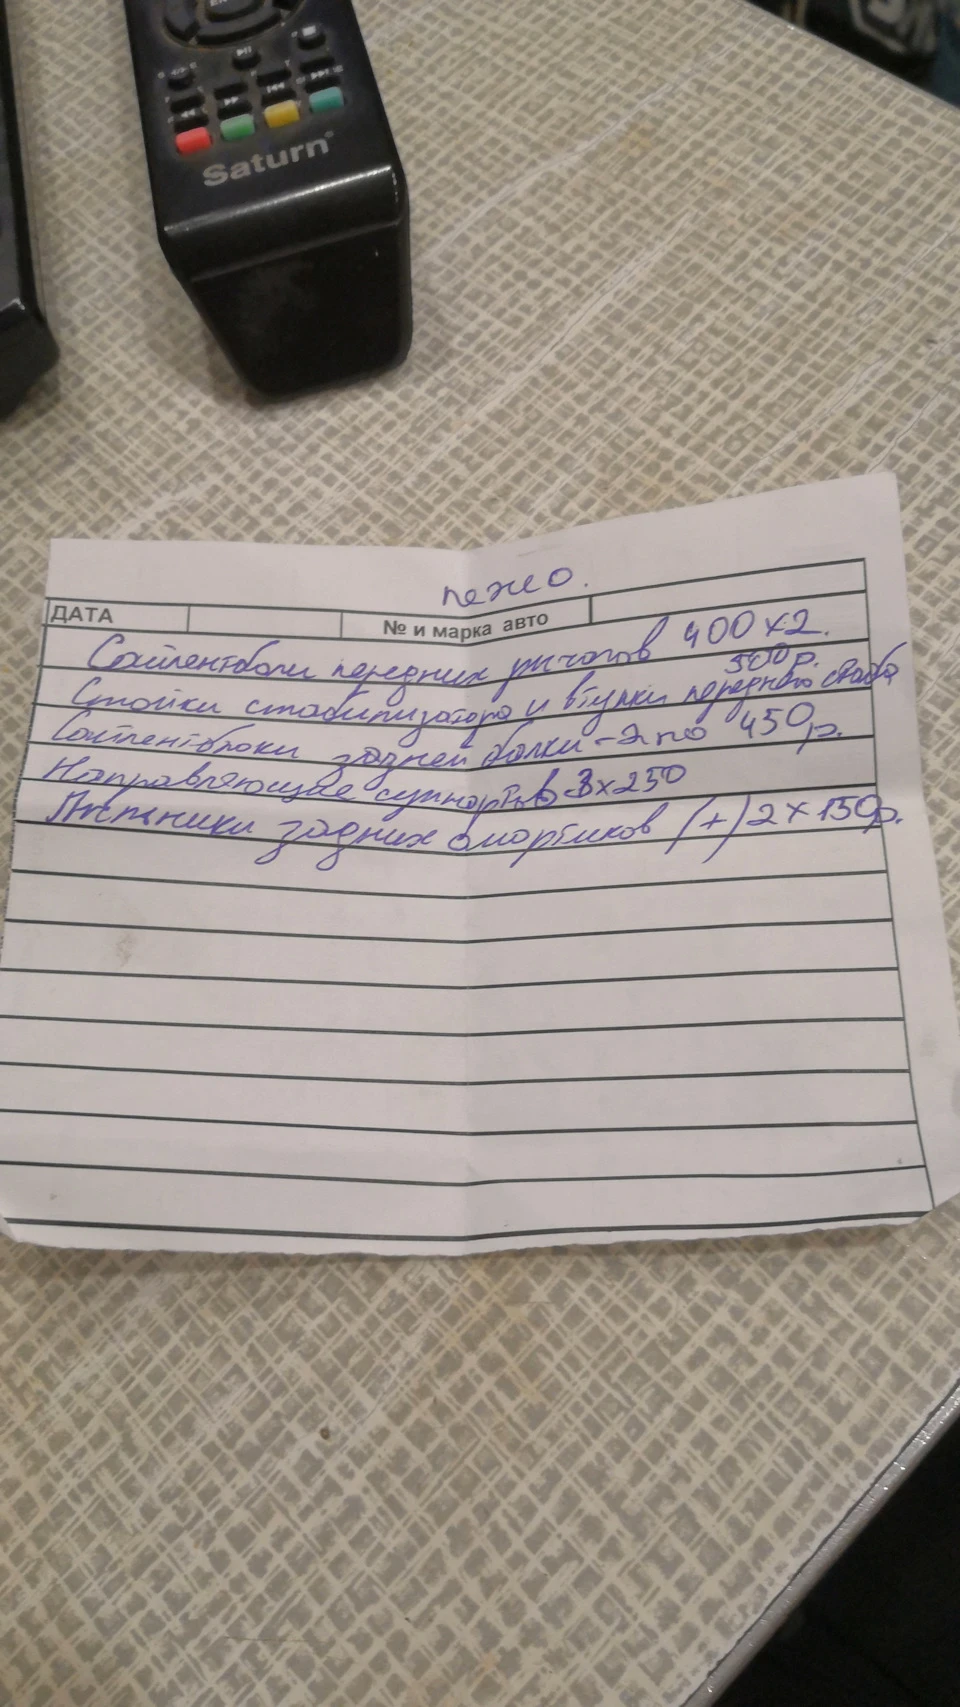 Saturn
пежо.
ДАТА
№ и марка авто
Сайлентблоки передних рычагов 400х2.
500р.
Стойки стабилизатора и втулки переднего стаба
Сайлентблоки задней балки - 2 по 450р.
Направляющие суппортов 3х250
задних амортиков (+) 2х150р.